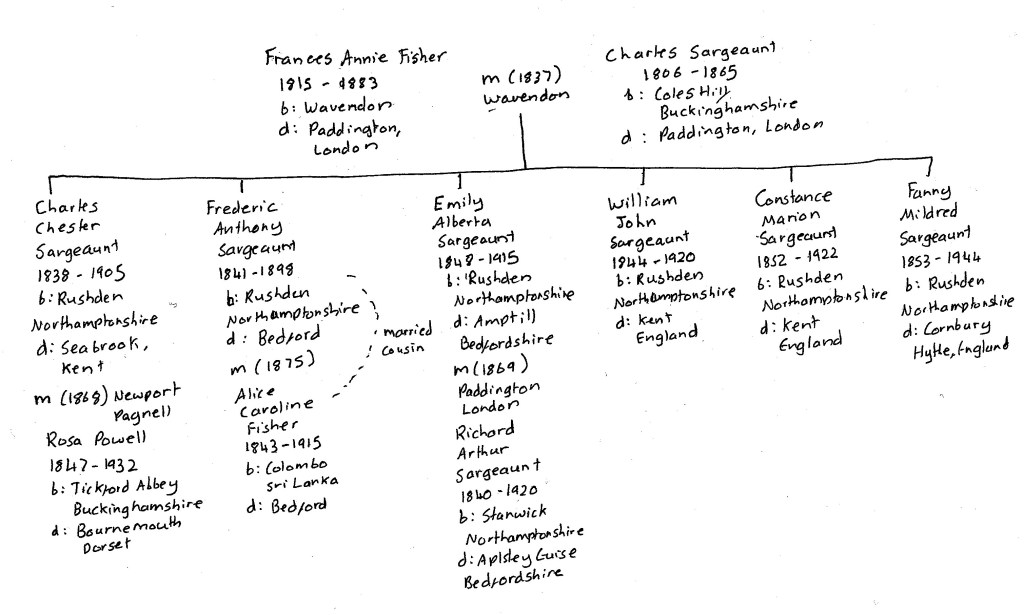 Frances Annie Fisher
1815 - 1883
b: Wavendon
d: Paddington,
London
m (1837)
Wavendon
Charles Sargeaunt
1806 - 1865
b: Coles Hill
Buckinghamshire
d: Paddington, London
Charles
Chester
Sargeaunt
1838 - 1905
b: Rushden
Northamptonshire
d: Seabrook,
Kent
m (1868) Newport
Pagnell
Rosa Powell
1847 - 1932
b: Tickford Abbey
Buckinghamshire
d: Bournemouth
Dorset
Frederic
Anthony
Sargeaunt
1841 - 1898
b: Rushden
Northamptonshire
d: Bedford
m (1875)
Alice
Caroline
Fisher
1843 - 1915
b: Colombo
Sri Lanka
d: Bedford
married
cousin
Emily
Alberta
Sargeaunt
1848 - 1915
b: Rushden
Northamptonshire
d: Amptill
Bedfordshire
m (1869)
Paddington
London
Richard
Arthur
Sargeaunt
1840 - 1920
b: Stanwick
Northamptonshire
d: Aplsley Guise
Bedfordshire
William
John
Sargeaunt
1844 - 1920
b: Rushden
Northamptonshire
d: Kent
England
Constance
Marion
Sargeaunt
1852 - 1922
b: Rushden
Northamptonshire
d: Kent
England
Fanny
Mildred
Sargeaunt
1853 - 1944
b: Rushden
Northamptonshire
d: Cornbury
Hytte, England